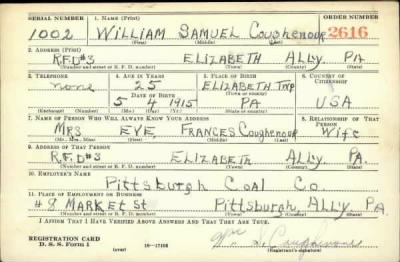 SERIAL NUMBER 1. NAME (Print) ORDER NUMBER
1002 WILLIAM SAMUEL Coughenour 2616
(First) (Middle) (Last)
2. ADDRESS (Print)
R.F.D#3 ELIZABETH ALLY. PA.
(Number and street or R. F. D. number) (Town) (County) (State)
3. TELEPHONE 4. AGE IN YEARS 5. PLACE OF BIRTH 6. COUNTRY OF CITIZENSHIP
none 25 ELIZABETH TWP
DATE OF BIRTH (Town or county)
5 4 1915 PA USA
(Exchange) (Number) (Mo.) (Day) (Yr.) (State or country)
7. NAME OF PERSON WHO WILL ALWAYS KNOW YOUR ADDRESS 8. RELATIONSHIP OF THAT PERSON
Mrs EVE FRANCES Coughenour Wife
(Mr., Mrs., Miss) (First) (Middle) (Last)
9. ADDRESS OF THAT PERSON
R.F.D#3 ELIZABETH ALLY. PA.
(Number and street or R. F. D. number) (Town) (County) (State)
10. EMPLOYER'S NAME
Pittsburgh Coal Co.
11. PLACE OF EMPLOYMENT OR BUSINESS
48 MARKET St Pittsburgh, ALLY PA
(Number and street or R. F. D. number) (Town) (County) (State)
I AFFIRM THAT I HAVE VERIFIED ABOVE ANSWERS AND THAT THEY ARE TRUE.
REGISTRATION CARD
D. S. S. FORM 1 (over) 16—17105 Wm. S. Coughenour
(Registrant's signature)